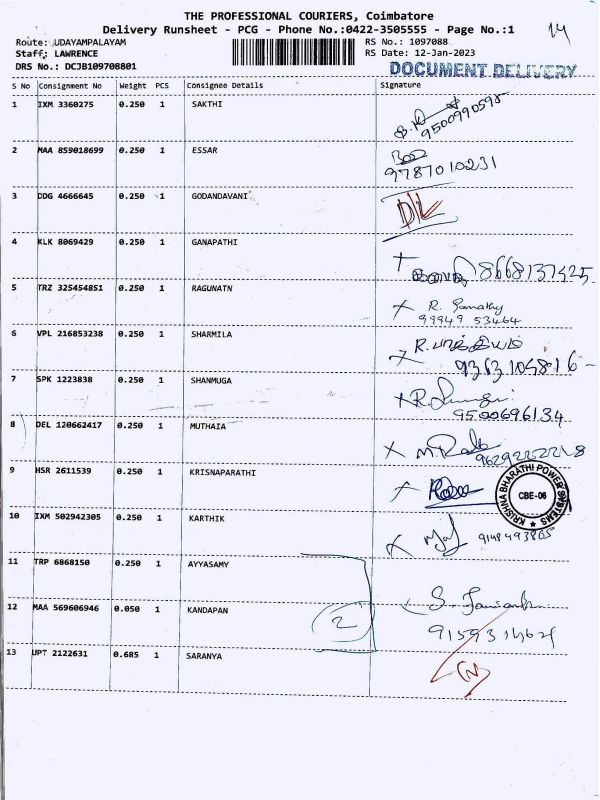 THE PROFESSIONAL COURIERS, Coimbatore
Delivery Runsheet - PCG - Phone No.:0422-3505555 - Page No.:1
14
Route: UDAYAMPALAYAM RS No.: 1097088
Staff: LAWRENCE RS Date: 12-Jan-2023
DRS No.: DCJB109708801 DOCUMENT DELIVERY
S No Consignment No Weight PCS Consignee Details Signature
1 IXM 3360275 0.250 1 SAKTHI
9500990598
2 MAA 859018699 0.250 1 ESSAR
9787010231
3 DDG 4666645 0.250 1 GODANDAVANI
DL
4 KLK 8069429 0.250 1 GANAPATHI
8668137425
5 TRZ 325454851 0.250 1 RAGUNATN
R.
99949 53464
6 VPL 216853238 0.250 1 SHARMILA
R.
7 SPK 1223838 0.250 1 SHANMUGA
9500696134
8 DEL 120662417 0.250 1 MUTHAIA
9 HSR 2611539 0.250 1 KRISNAPARATHI
KRISHNA BHARATHI POWER SYSTEMS
CBE-06
10 IXM 502942305 0.250 1 KARTHIK
9148493865
11 TRP 6868150 0.250 1 AYYASAMY
12 MAA 569606946 0.050 1 KANDAPAN
2
13 UPT 2122631 0.685 1 SARANYA